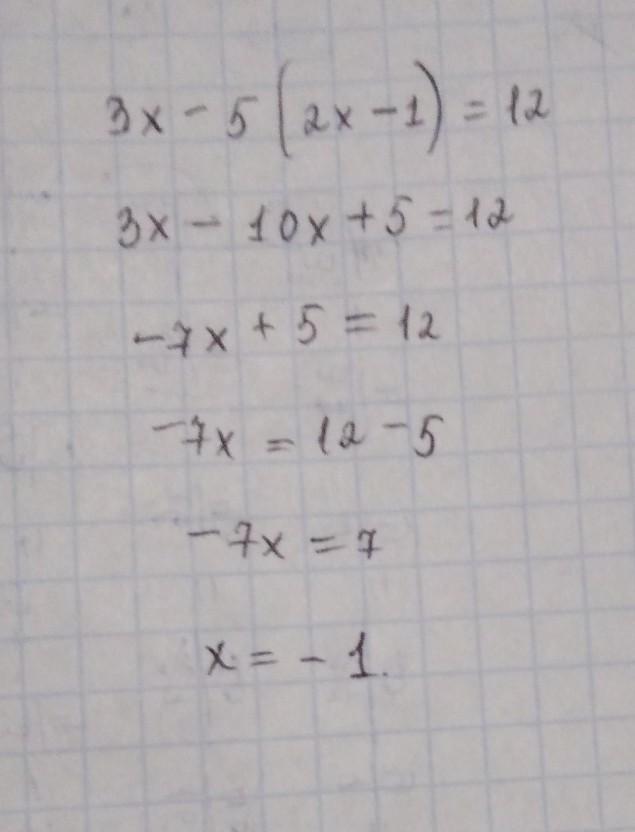 3x - 5 (2x - 1) = 12
3x - 10x + 5 = 12
-7x + 5 = 12
-7x = 12 - 5
-7x = 7
x = -1.